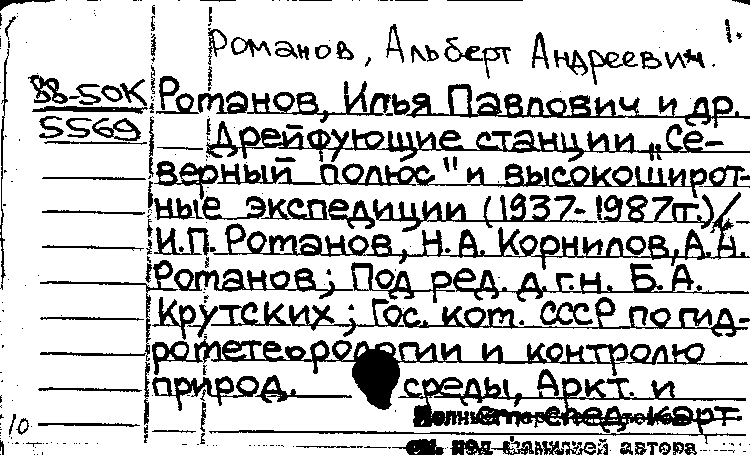 1.
Романов, Альберт Андреевич.
88-50К
5569
Романов, Илья Павлович и др.
Дрейфующие станции „Се-
верный полюс" и высокоширот-
ные экспедиции (1937-1987гг.)/
И.П. Романов, Н.А. Корнилов, А.А.
Романов; Под ред. д.г.н. Б.А.
Крутских; Гос. ком. СССР по гид-
рометеорологии и контролю
природ. среды, Аркт. и
см. след. карт.
см. под фамилией автора
10